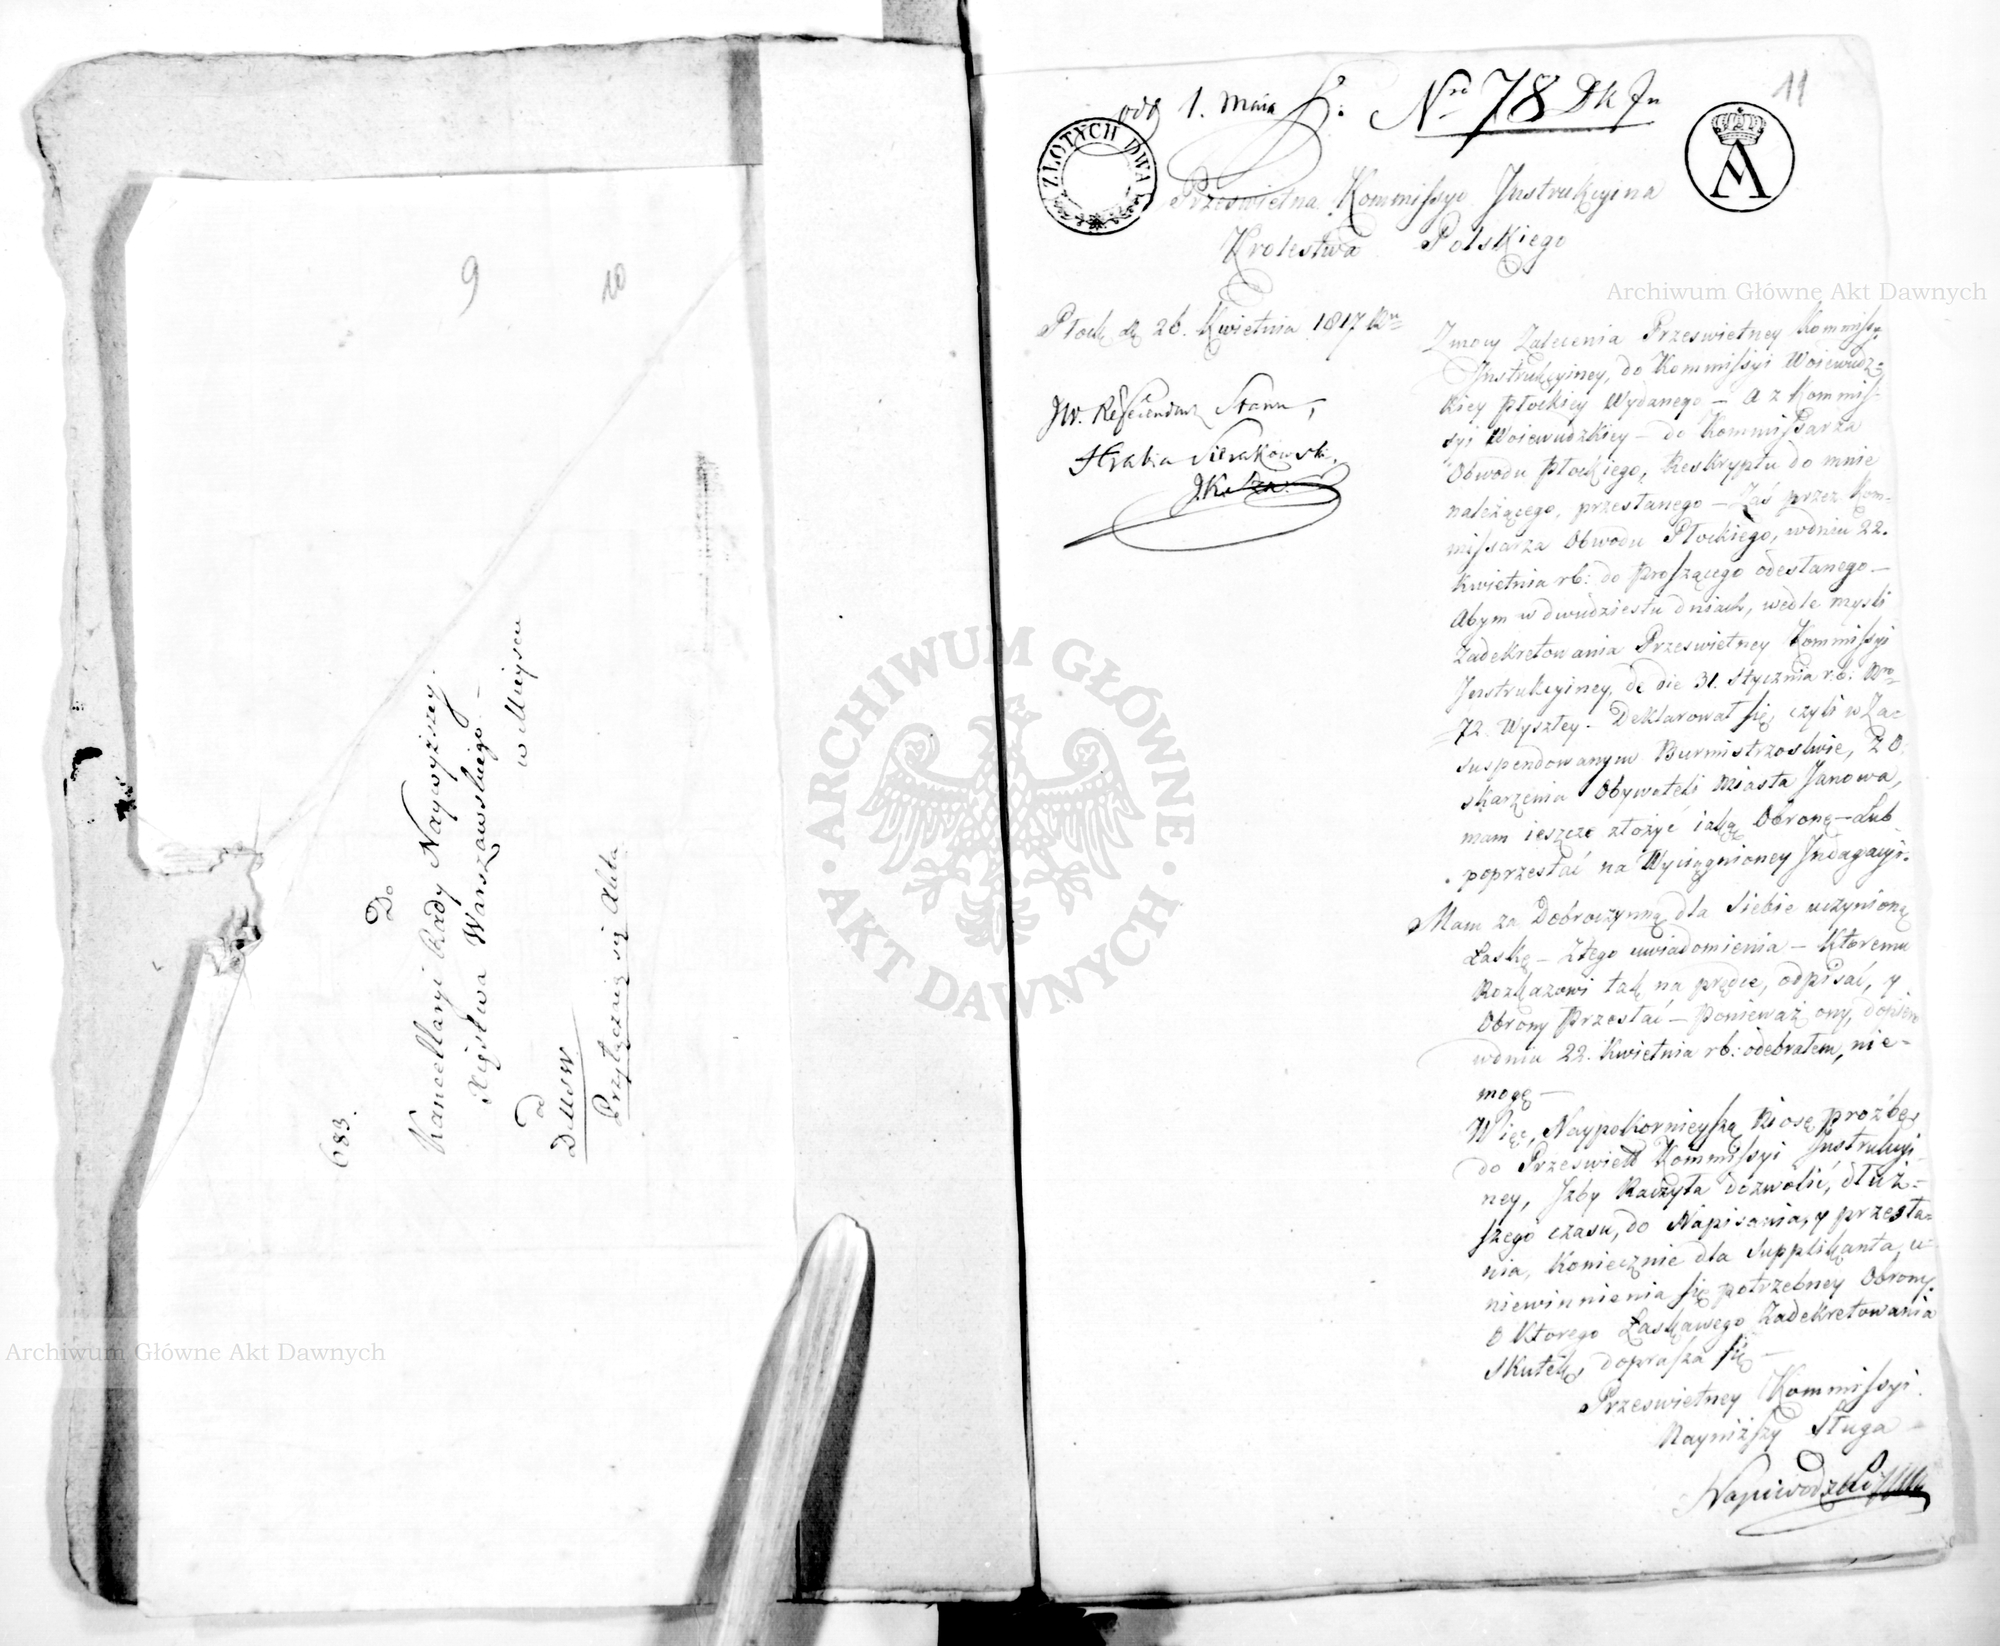 9
10
683.
Do
Kancellaryi Rady Naywyższey
Xięstwa Warszawskiego. –
w Mieyscu
od
D MSW
Przyłączaią się Akta
11
odd 1. Maia
Nro 78 Dk Jn
ZŁOTYCH DWA
Prześwietna Kommissyo Instrukcyina
Krolestwa Polskiego
Płock d 26. Kwietnia 1817 Ru
JW. Referendarz Stanu,
Hrabia Sierakowski.
Zmocy Zalecenia Prześwietney Kommissyi
Instrukcyiney, do Kommissyi Woiewudz=
kiey Płockiey Wydanego – A z Kommis-
syi Woiewudzkiey – do Kommissarza
Obwodu Płockiego, Reskryptu do mnie
należącego, przesłanego – Zaś przez Kom-
missarza Obwodu Płockiego, wdniu 22.
Kwietnia rb: do Proszącego odesłanego –
Abym w dwudziestu dniach, wedle myśli
Zadekretowania Prześwietney Kommissyi
Instrukcyiney, de die 31. Stycznia r.b: Nro
72. Wyszłey – Deklarował się, czyli w Za=
suspendowanym Burmistrzostwie, Z O
skarżenia Obywateli Miasta Janowa,
mam ieszcze złożyć iaką Obronę – Lub
poprzestać na Wyciągnioney Indagacyi.
Mam za Dobroczynną dla siebie uczynioną
Łaskę – Ztego uwiadomienia – Któremu
Rozkazowi tak na prędce, odpisać, y
Obrony Przesłać – Ponieważ ony, dopiero
wdniu 22. Kwietnia rb: odebrałem, nie-
mogę –
Więc, Naypokornieyszą Niosę proźbę,
do Prześwietn Kommissyi Instrukcyi-
ney, Iżby Raczyła dozwolić, dłuż=
szego czasu, do Napisania, y przesła=
nia, Koniecznie dla Supplikanta, u-
niewinnienia się potrzebney Obrony,
O Którego Łaskawego Zadekretowania
skutek, doprasza się –
Prześwietney Kommissyi
Nayniższy Sługa –
Napiwodzki
Archiwum Główne Akt Dawnych
Archiwum Główne Akt Dawnych
ARCHIWUM GŁÓWNE AKT DAWNYCH